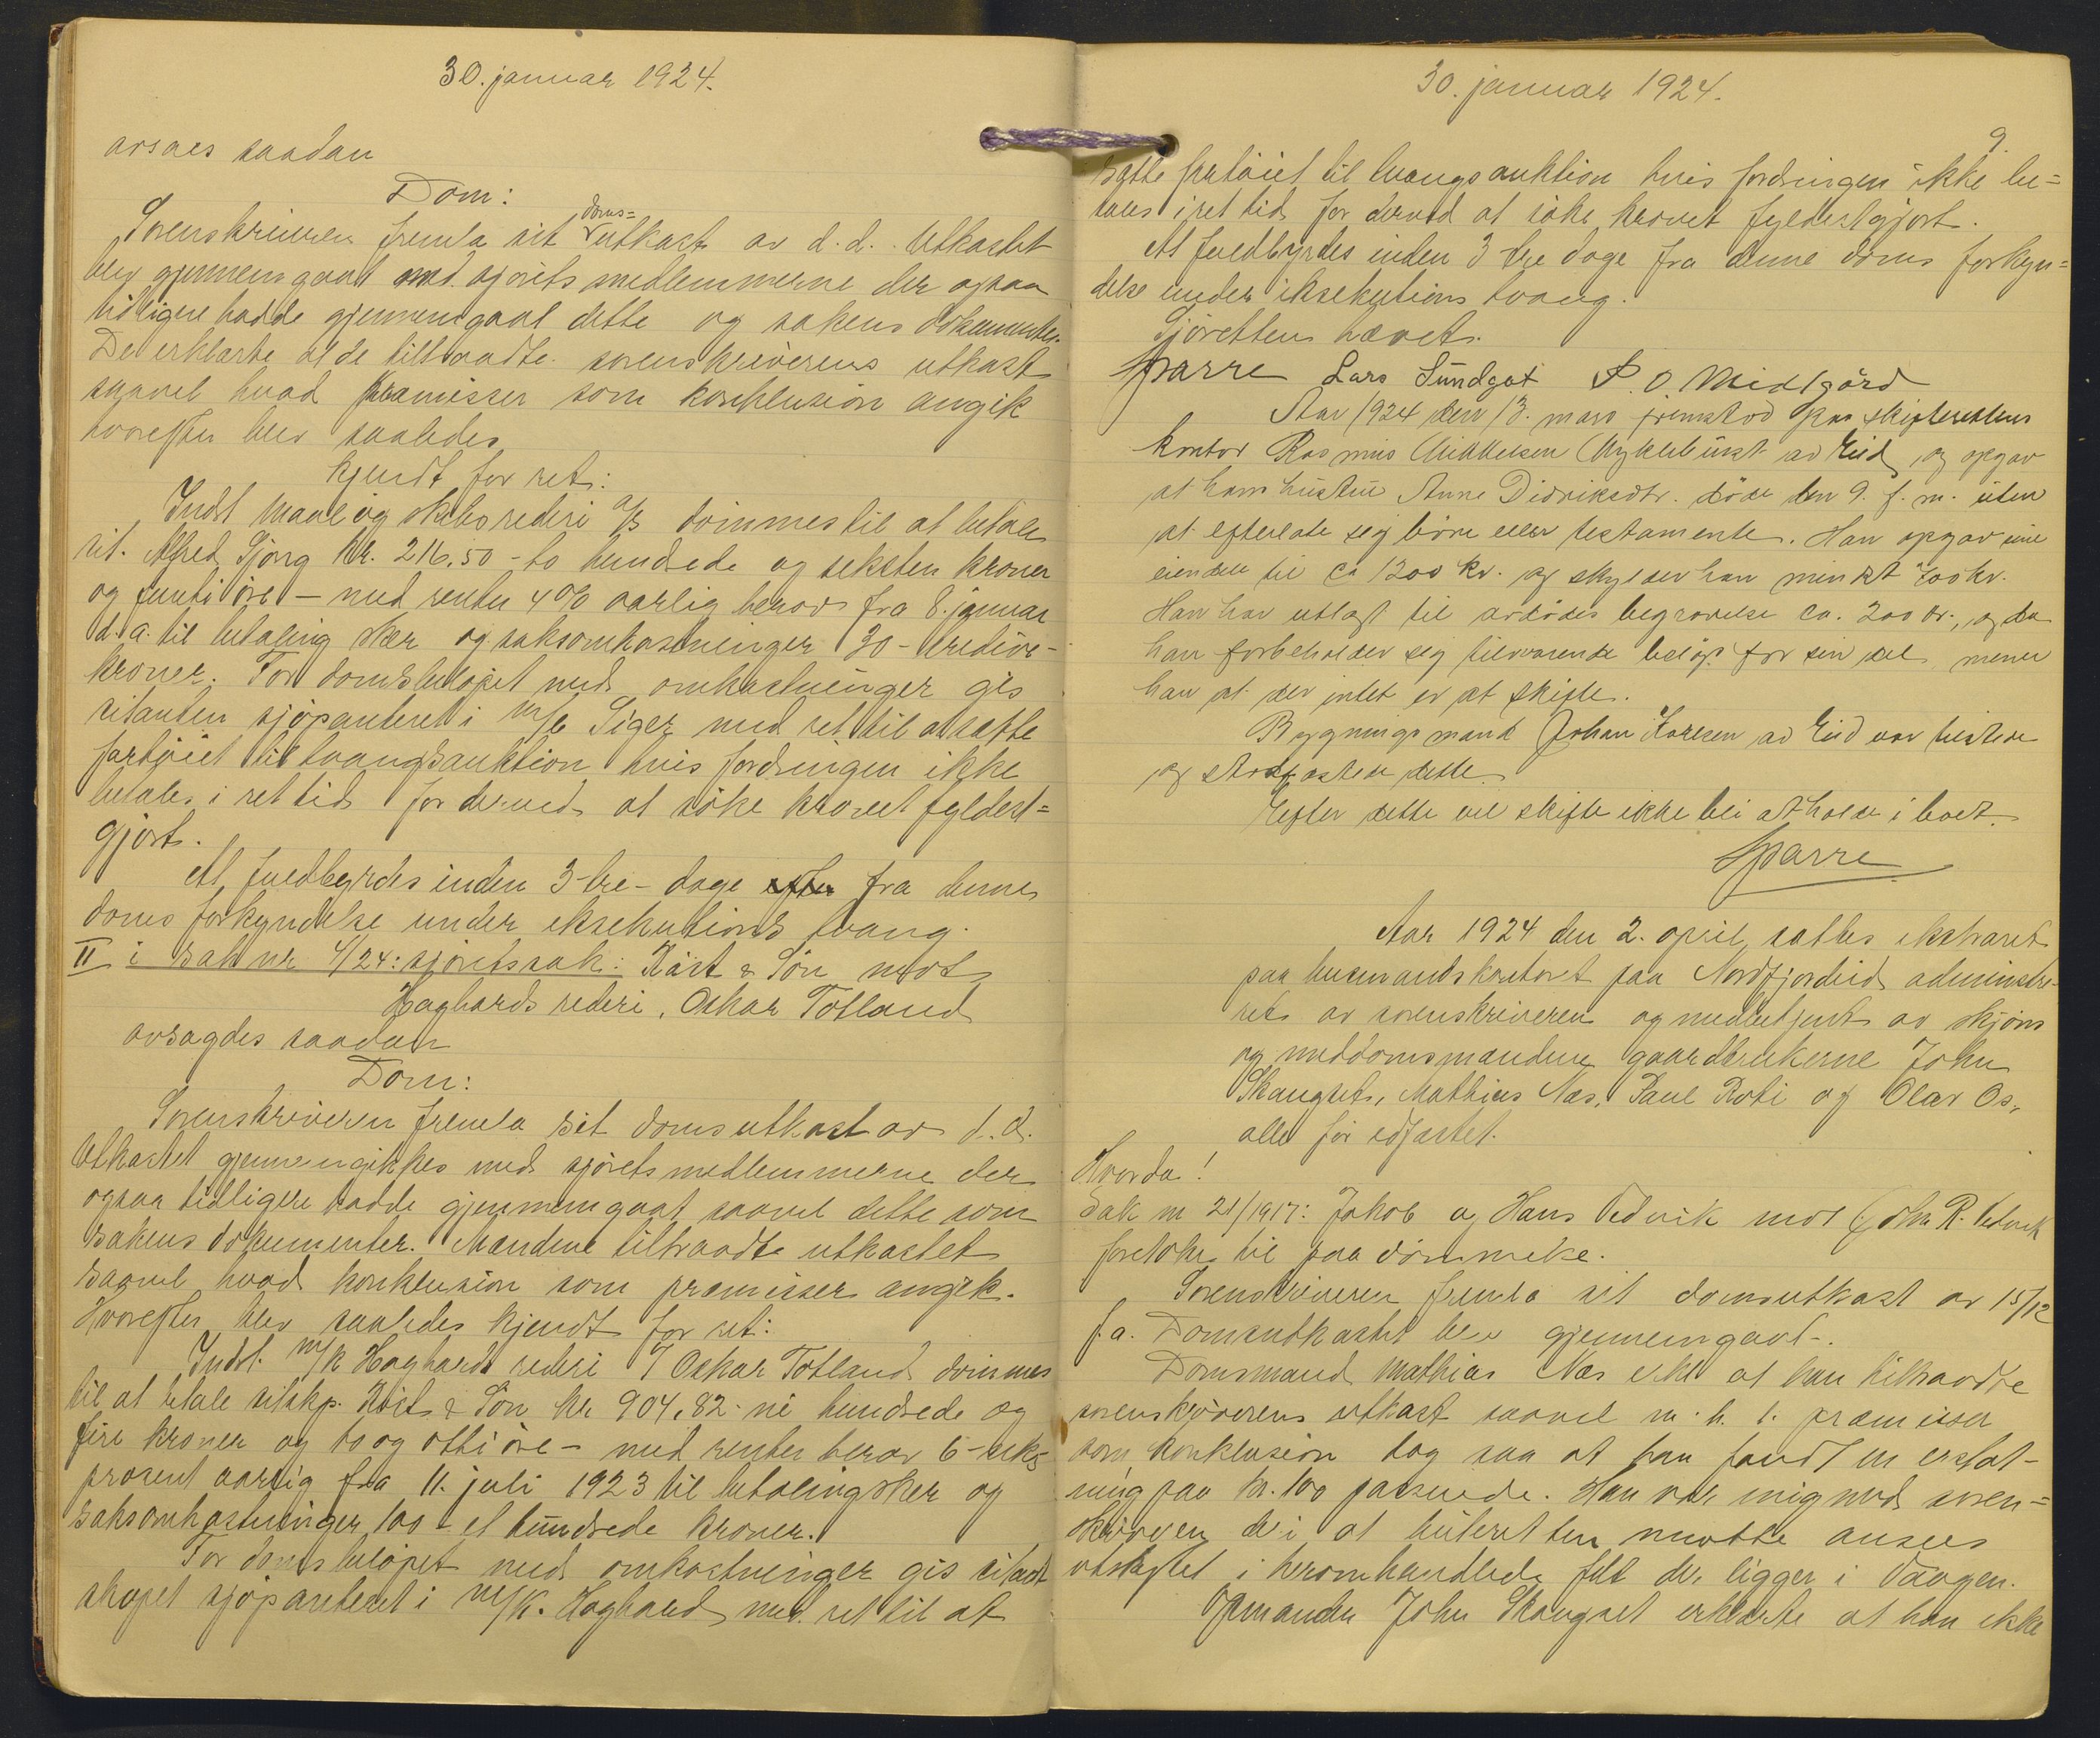 30. januar 1924.
avsaes saadan
Dom:
Sorenskriveren fremla sit doms=utkast av d.d. Utkastet
blev gjennemgaat med sjøretsmedlemmerne der ogsaa
tidligere hadde gjennemgaat dette og sakens dokumenter.
De erklærte at de tiltraadte sorenskriverens utkast
saavel hvad præmisser som konklusion angik
hvorefter blev saaledes
kjendt for ret:
Indst maal og skibsrederi A/S dømmes til at betale
cit. Alfred Gjørg kr. 216,50 - to hundrede og seksten kroner
og femti øre - med renter 4% aarlig herav fra 8. januar
d.a. til betaling sker og saksomkostninger 30 - tredive -
kroner. For domsbeløpet med omkostninger gis
citanten sjøpanteret i m/k Siger med ret til at sætte
fartøiet til tvangsauktion hvis fordringen ikke
betales i ret tid for derved at søke kravet fyldest=
gjort.
At fuldbyrdes inden 3 - tre - dage efter fra denne
doms forkyndelse under eksekutions tvang.
II i sak nr 4/24: sjøretssak: Røst & Søn mot
Hagbards rederi, Oskar Totland
avsagdes saadan
Dom:
Sorenskriveren fremla sit domsutkast av d.d.
Utkastet gjennemgikkes med sjøretsmedlemmerne der
ogsaa tidligere hadde gjennemgaat saavel dette som
sakens dokumenter. Mændene tiltraadte utkastet
saavel hvad konklusion som præmisser angik.
Hvorefter blev saaledes kjendt for ret:
Indst. m/k Hagbards rederi v/ Oskar Totland dømmes
til at betale citskp. Røst & Søn kr 904,82 - ni hundrede og
fire kroner og to og otti øre - med renter herav 6 - seks
prosent aarlig fra 11. juli 1923 til betaling sker og
saksomkostninger 100 - et hundrede kroner.
For domsbeløpet med omkostninger gis citant
skapet sjøpanteret i m/k. Hagbard med ret til at
30. januar 1924.
9.
sætte fartøiet til tvangsauktion hvis fordringen ikke be=
tales i ret tid for derved at søke kravet fyldestgjort.
At fuldbyrdes inden 3 tre dage fra denne doms forkyn=
delse under eksekutions tvang.
Sjøretten hævet.
Sparre Lars Sundgot P. O. Midtgård
Aar 1924 den 13. mars fremstod paa skifterettens
kontor Rasmus Mikkelsen Myklebust av Eid og opgav
at hans hustru Anne Didriksdtr. døde den 9. f. m. uten
at efterlate seg børn eller testamente. Han opgav sine
eiendele til ca 1200 kr. og skylder han mindst 700 kr.
Han har utlagt til avdødes begravelse ca. 200 kr., og da
han forbeholder seg tilsvarende beløp for sin del, mener
han at der intet er at skifte.
Bygningsmand Johan Larsen av Eid var tilstede
og stadfæstede dette.
Efter dette vil skifte ikke bli at holde i boet.
Sparre
Aar 1924 den 2. april sattes ekstraret
paa lensmandskontoret paa Nordfjordeid administre-
ret av sorenskriveren og medbetjent av skjøns
og meddomsmændene gaardbrukerne John
Skaugset, Mathias Næs, Paul Roti og Olav Os,
alle før edfæstet.
Hvorda!
Sak nr 21/1917: Jakob og Hans Vedvik mot John R. Vedvik
foretokes til paadømmelse.
Sorenskriveren fremla sit domsutkast av 15/12
f.a. Domsutkastet blev gjennemgaat.
Domsmand Mathias Næs erkl. at han tiltraadte
sorenskriverens utkast saavel m. h. t. præmisser
som konklusion dog saa at han fandt en erstat-
ning paa kr. 100 passende. Han var enig med soren=
skriveren de i at beiteretten maatte ansees
utskiftet i heromhandlede felt der ligger i Vaagen.
Opmanden John Skaugset erklærte at han ikke